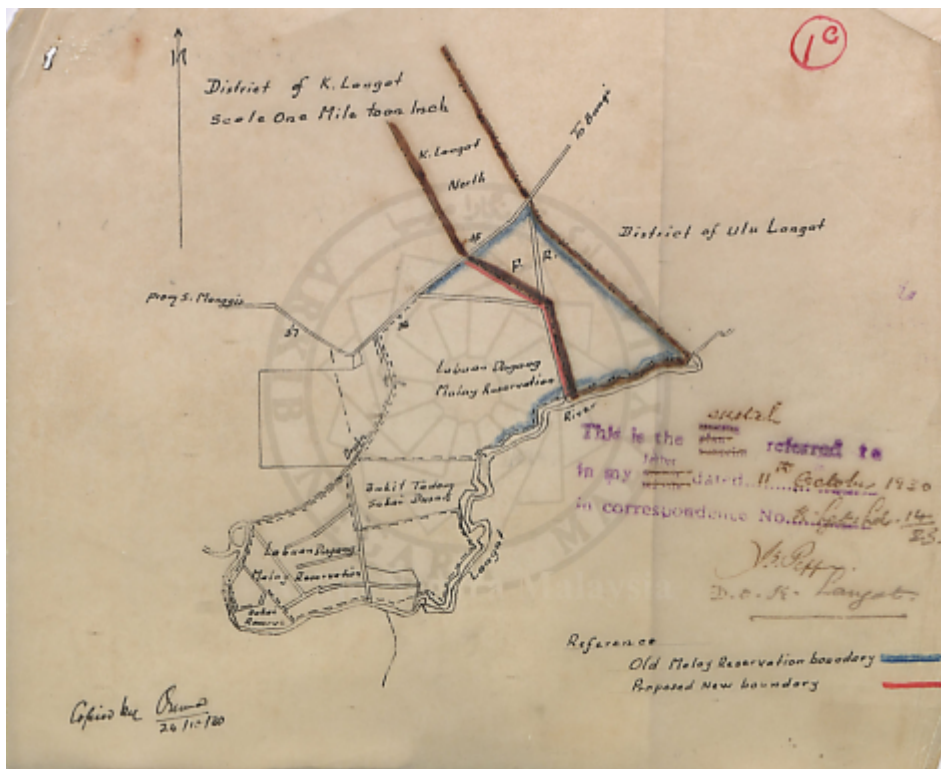 1c
N
District of K. Langat
Scale One Mile to an Inch
To Bangi
K. Langat
North
District of Ulu Langat
35
F. R.
From S. Manggis
37
36
Labuan Dagang
Malay Reservation
River
Langat
Bukit Tadom
Sakai
Labuan Dagang
Malay Reservation
Sakai
Reserve
This is the sketch referred to
in my letter dated 11th October 1930
in correspondence No. 14
D.O. K. Langat.
Reference
Old Malay Reservation boundary
Proposed New boundary
Copied by